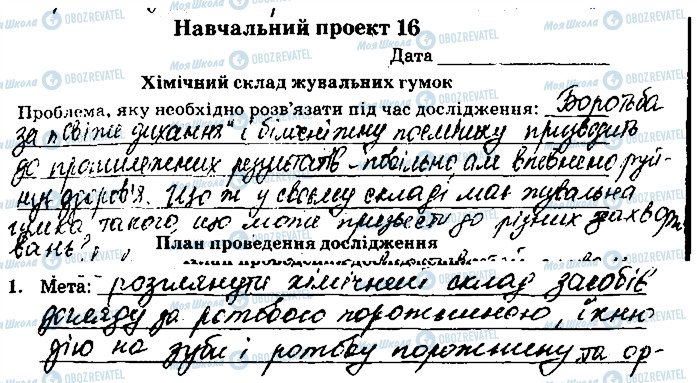 Навчальний проект 16
Дата
Хімічний склад жувальних гумок
Проблема, яку необхідно розв'язати під час дослідження: Боротьба
за „свіже дихання" і білосніжну посмішку призводить
до протилежних результатів – повільно, але впевнено руй-
нує здоров'я. Що ж у своєму складі має жувальна
гумка такого, що може призвести до різних захворю-
вань?
План проведення дослідження
1. Мета: розглянути хімічний склад засобів
догляду за ротовою порожниною, їхню
дію на зуби і ротову порожнину та ор-